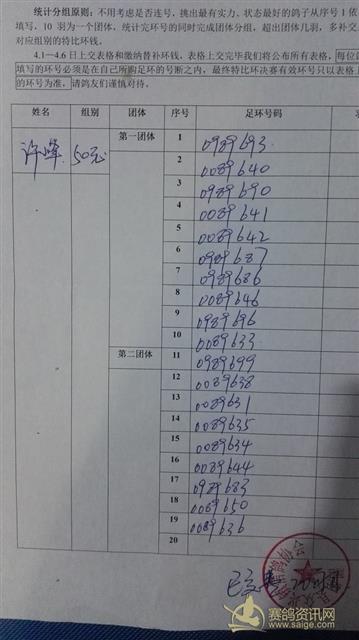 统计分组原则：不用考虑是否连号，挑出最有实力、状态最好的鸽子从序号1依
填写，10羽为一个团体，统计完环号的同时完成团体分组，超出团体几羽，多补交
对应组别的特比环钱。
4.1—4.6日上交表格和缴纳替补环钱，表格上交完毕我们将公布所有表格，每位
填写的环号必须是在自己所购足环的号断之内，最终特比环决赛有效环号只以表格上
的环号为准，请鸽友们谨慎对待。
姓名 组别 团体 序号 足环号码
许峰 50元 第一团体 1 0989693
2 0089640
3 0989690
4 0089641
5 0089642
6 0989687
7 0989686
8 0089646
9 0989696
10 0089633
第二团体 11 0989699
12 0089638
13 0089631
14 0089635
15 0089634
16 0089644
17 0989683
18 0089650
19 0089636
20
已交费
鸽协会
赛鸽资讯网
www.saige.com